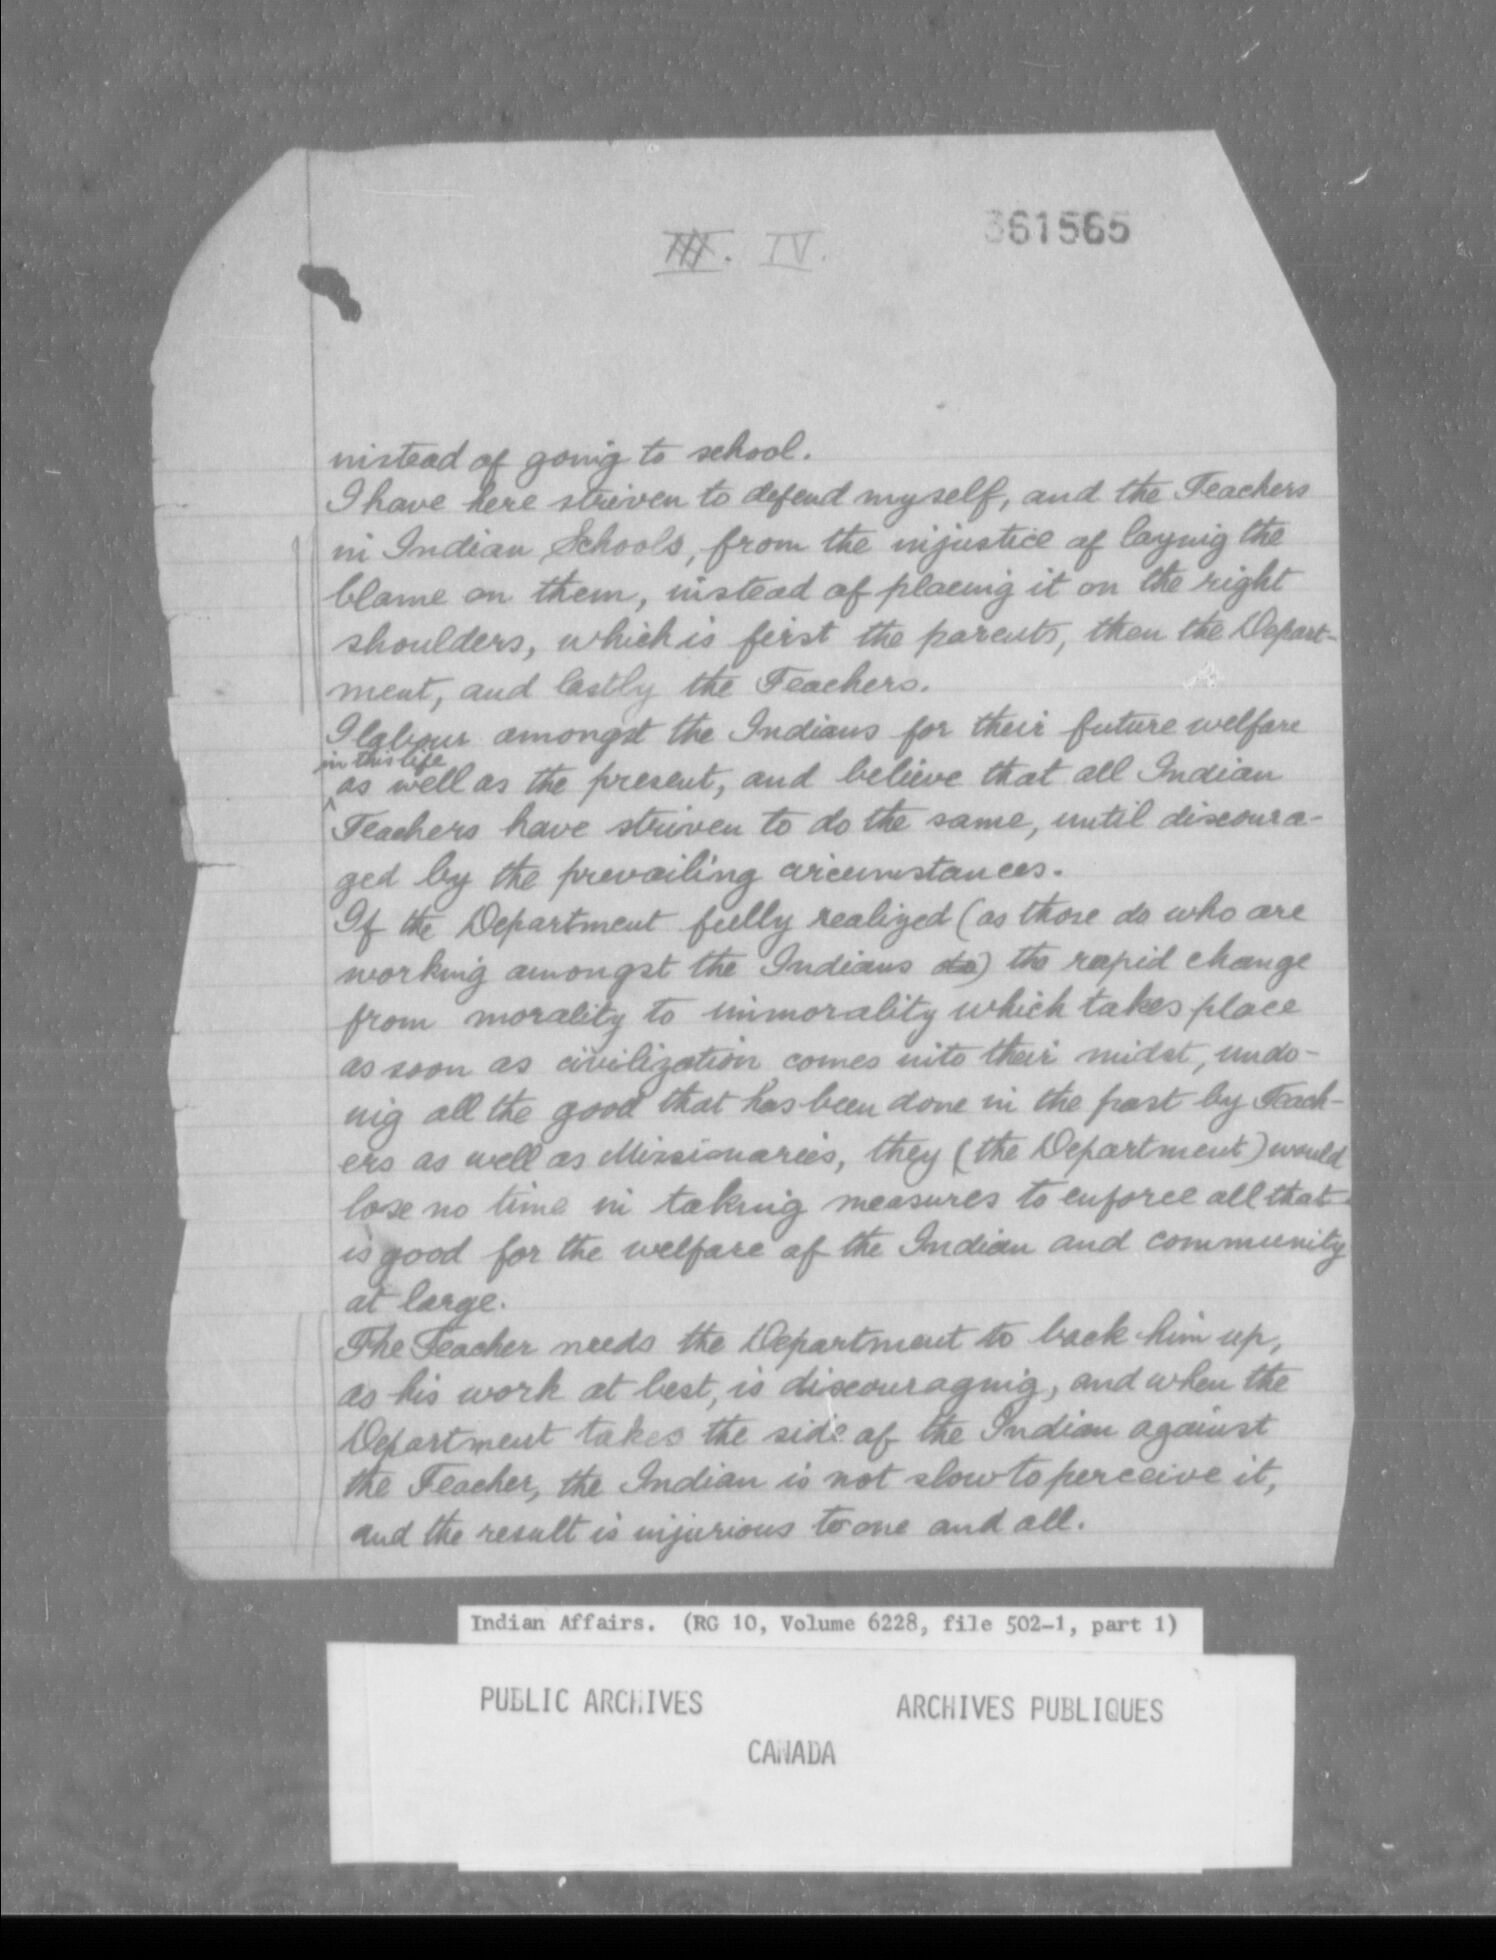 III. IV.
361565
instead of going to school.
I have here striven to defend myself, and the Teachers
in Indian Schools, from the injustice of laying the
blame on them, instead of placing it on the right
shoulders, which is first the parents, then the Depart-
ment, and lastly the Teachers.
I labour amongst the Indians for their future welfare
in this life
as well as the present, and believe that all Indian
Teachers have striven to do the same, until discoura-
ged by the prevailing circumstances.
If the Department fully realized (as those do who are
working amongst the Indians do) the rapid change
from morality to immorality which takes place
as soon as civilization comes into their midst, undo-
ing all the good that has been done in the past by Teach-
ers as well as Missionaries, they (the Department) would
lose no time in taking measures to enforce all that
is good for the welfare of the Indian and community
at large.
The Teacher needs the Department to back him up,
as his work at best, is discouraging, and when the
Department takes the side of the Indian against
the Teacher, the Indian is not slow to perceive it,
and the result is injurious to one and all.
Indian Affairs. (RG 10, Volume 6228, file 502-1, part 1)
PUBLIC ARCHIVES ARCHIVES PUBLIQUES
CANADA